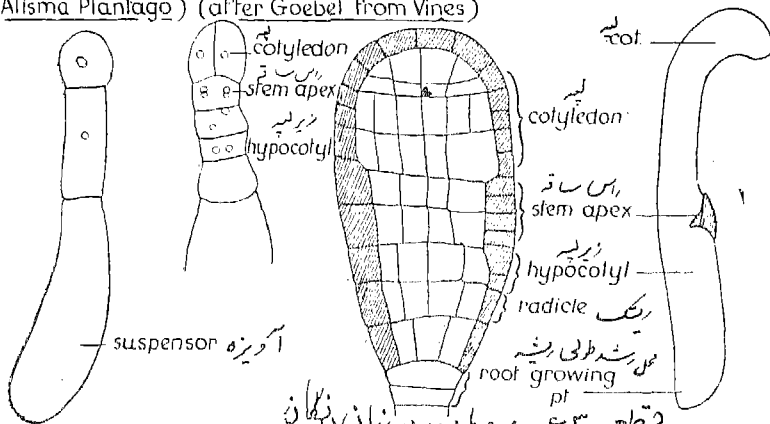 Alisma Plantago) (after Goebel from Vines)
لپه
cotyledon
راس ساقه
stem apex
زیر لپه
hypocotyl
suspensor آویزه
لپه
cotyledon
راس ساقه
stem apex
زیر لپه
hypocotyl
radicle
محل رشد طولی ریشه
root growing
pt
لپه
cot.